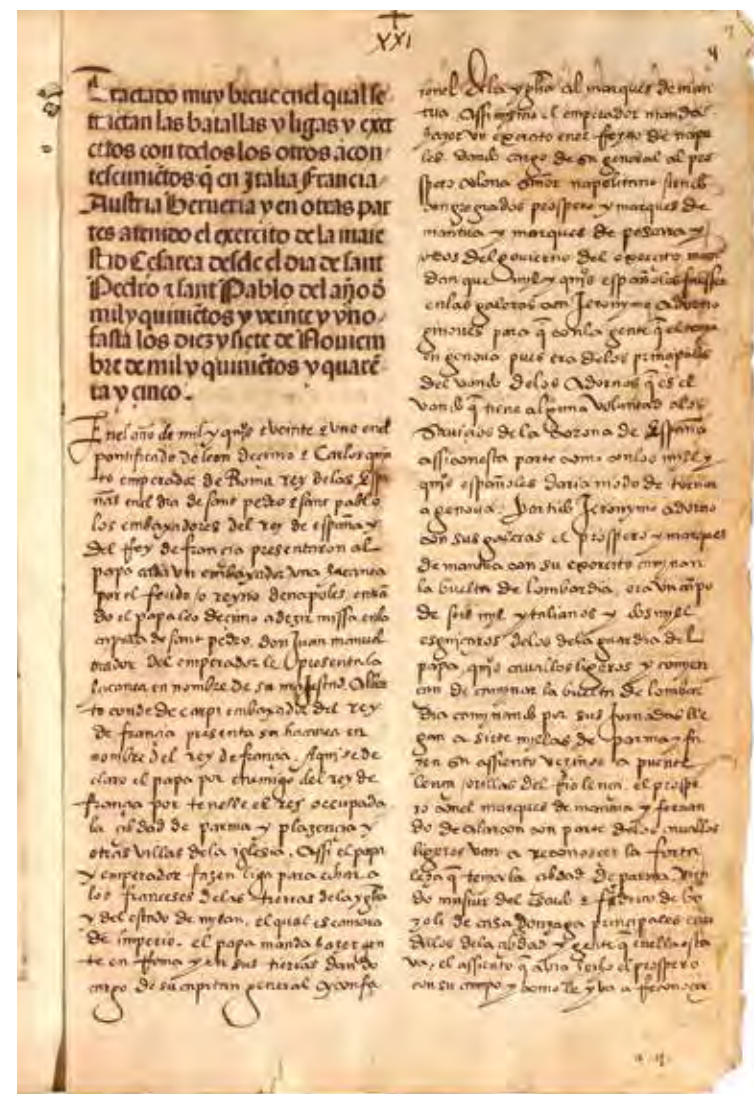 XXI
Tractado muy breue enel qual se
tractan las batallas y ligas y exer
citos con todos los otros acon
tescimiētos q̄ en Italia Francia
Austria Berueria y en otras par
tes a tenido el exercito de la maie
stad Cesarea desde el dia de sant
Pedro z sant Pablo del año d̄
mil y quiniētos y veinte y vno
fasta los diez y siete de Nouiem
bre de mil y quiniētos y quarē
ta y cinco.
En el año de mil y quis e veinte z vno enel
pontificado de leon decimo z Carlos quin
to emperador de Roma rey delas Espa
ñas enel dia de sant pedro z sant pablo
los embaxadores del rey de españa y
del Rey de francia presentaron al
papa cada vn embaxador vna hacanea
por el feudo o reyno de napoles, entrā
do el papa leo decimo a dezir missa enla
capilla de sant pedro, don Juan manuel
orador del emperador le presenta la
hacanea en nombre de su magestad, Alber
to conde de carpi embaxador del rey
de francia presenta su hacanea en
nombre del rey de francia. Aqui se de
claro el papa por enemigo del rey de
françia por tenelle el rey occupada
la cibdad de parma y plazencia y
otras villas dela iglesia. Assi el papa
y emperador fazen liga para echar a
los franceses delas tierras dela ygłia
y del estado de mylan, el qual es camara
de imperio. el papa manda hazer gen
te en Roma y en sus tierras dando
cargo de su capitan general y confa
ronel dela ygłia al marques de man
tua. Assi mismo el emperador manda
hazer vn exercito enel Reyno de napo
les dando cargo de su general al pros
spero colona señor napolitano siendo
congregados prospero y marques de
mantua y marques de pescara y
otros del gouierno del exercito man
dan que mil y quis españoles
enlas galeras con Jeronymo adorno
ginoues para q̄ con la gente q̄ el tenia
en genoua pues era delos principales
del vando delos Adornos q̄ es el
vando q̄ tiene alguna voluntad alos
seruicios dela Corona de España
assi con esta parte como con los mil y
quis españoles daria modo de tornar
a genoua. Partido Jeronymo adorno
con sus galeras el prospero y marques
de mantua con su exercito caminan
la buelta de lombardia, era vn cāpo
de seis mil ytalianos y dos mil
esguiçaros delos dela guardia del
papa, quis cauallos ligeros y comien
çan de caminar la buelta de lombar
dia caminando por sus jornadas lle
gan a siete millas de parma y fa
zen su assiento vezinos a puente
lença orillas del Rio lença. el prospe
ro conel marques de mantua y fernan
do de alarcon con parte delos cauallos
ligeros van a reconoscer la forta
leza q̄ tenia la cibdad de parma.
de casa Gonzaga principales cau
dillos dela cibdad y gente q̄ enella esta
va, el assiento q̄ auia hecho el prospero
con su campo y como le yva a Reconoscer